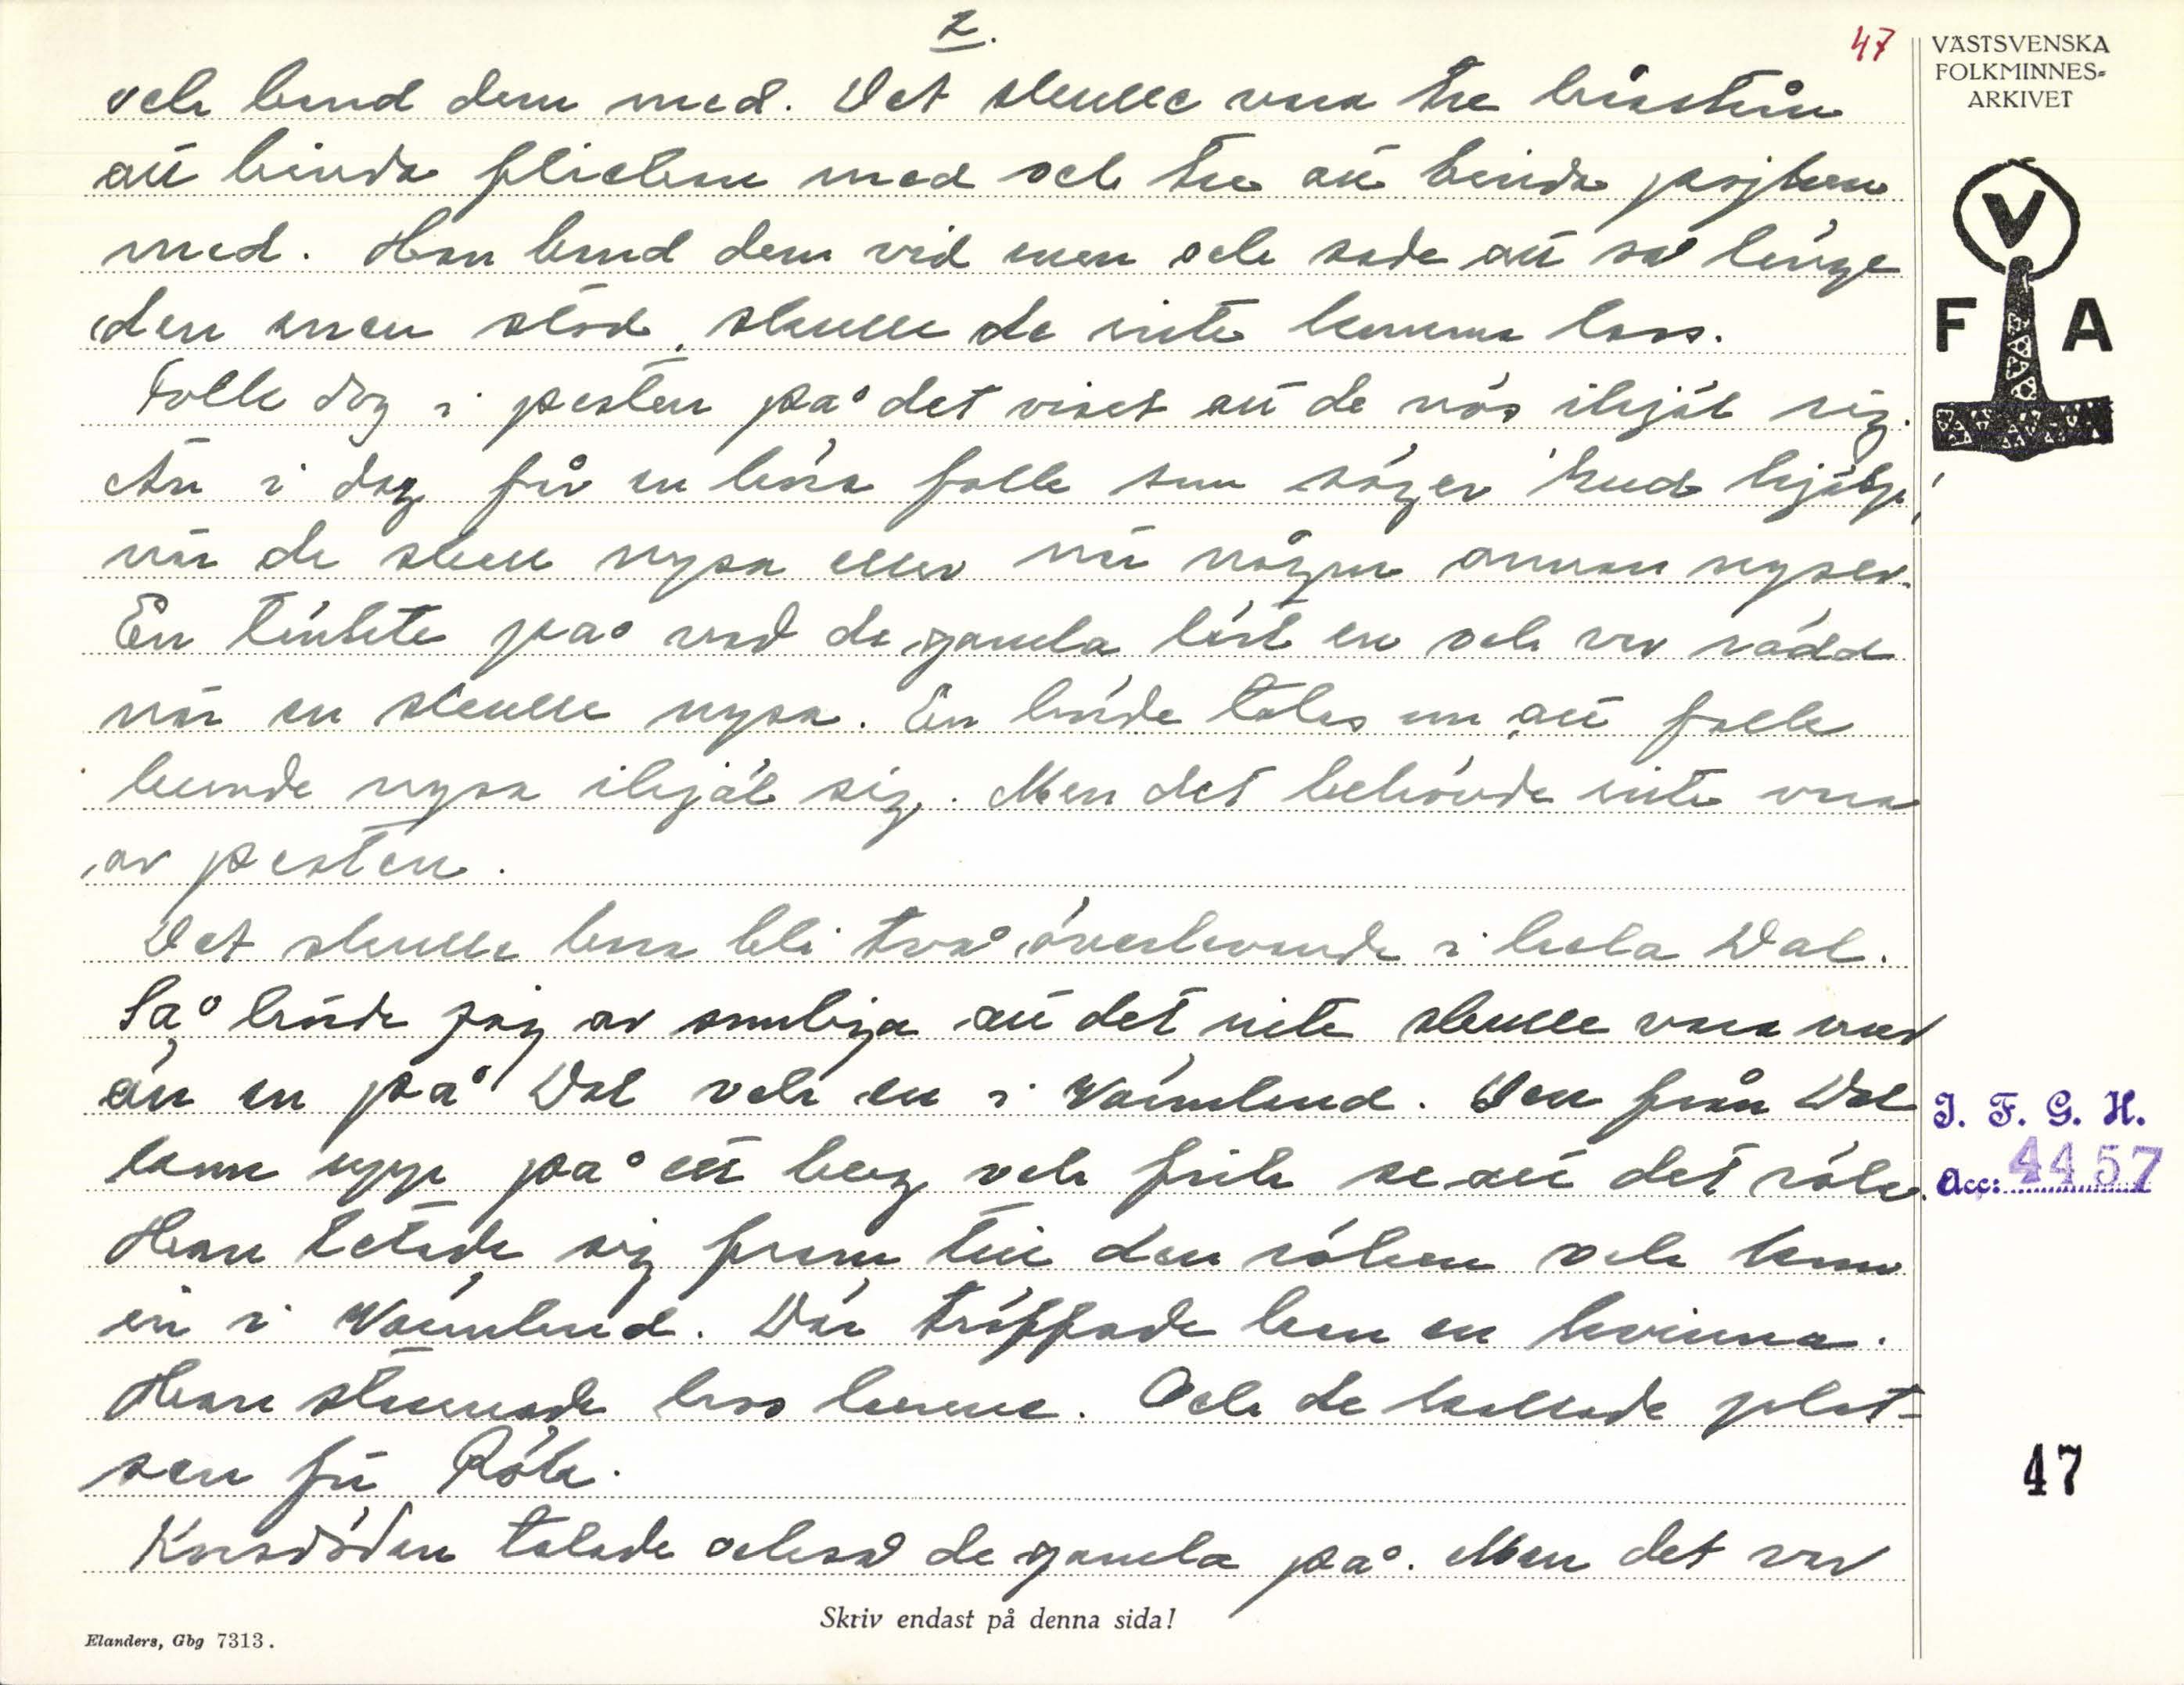 2.
47
VÄSTSVENSKA
FOLKMINNES-
ARKIVET
och bund dem med. Det skulle vara tre hårstrån
att binda flickan med och tre att binda pojken
med. Han bund dem vid enen och sade att så länge
den enen stod, skulle de inte komma loss.
V
F A
Folk dog i pesten på det viset att de nös ihjäl sig.
Än i dag får en höra folk som säger 'Gud hjälp',
när de skall nysa eller när någon annan nyser.
En tänkte på vad de gamla lärt en och var rädd
när en skulle nysa. En hörde talas om att folk
kunde nysa ihjäl sig. Men det behövde inte vara
av pesten.
Det skulle bara bli två överlevande i hela Dal.
Så hörde jag av somliga att det inte skulle vara mer
än en på Dal och en i Värmland. Den från Dal
kom upp på ett berg och fick se att det rök.
Han letade sig fram till den röken och kom
in i Värmland. Där träffade han en kvinna.
Han stannade hos henne. Och de kallade plat-
sen för Rök.
Knesdöden talade också de gamla på. Men det var
I. F. G. H.
Acc: 4457
47
Skriv endast på denna sida!
Elanders, Gbg 7313.